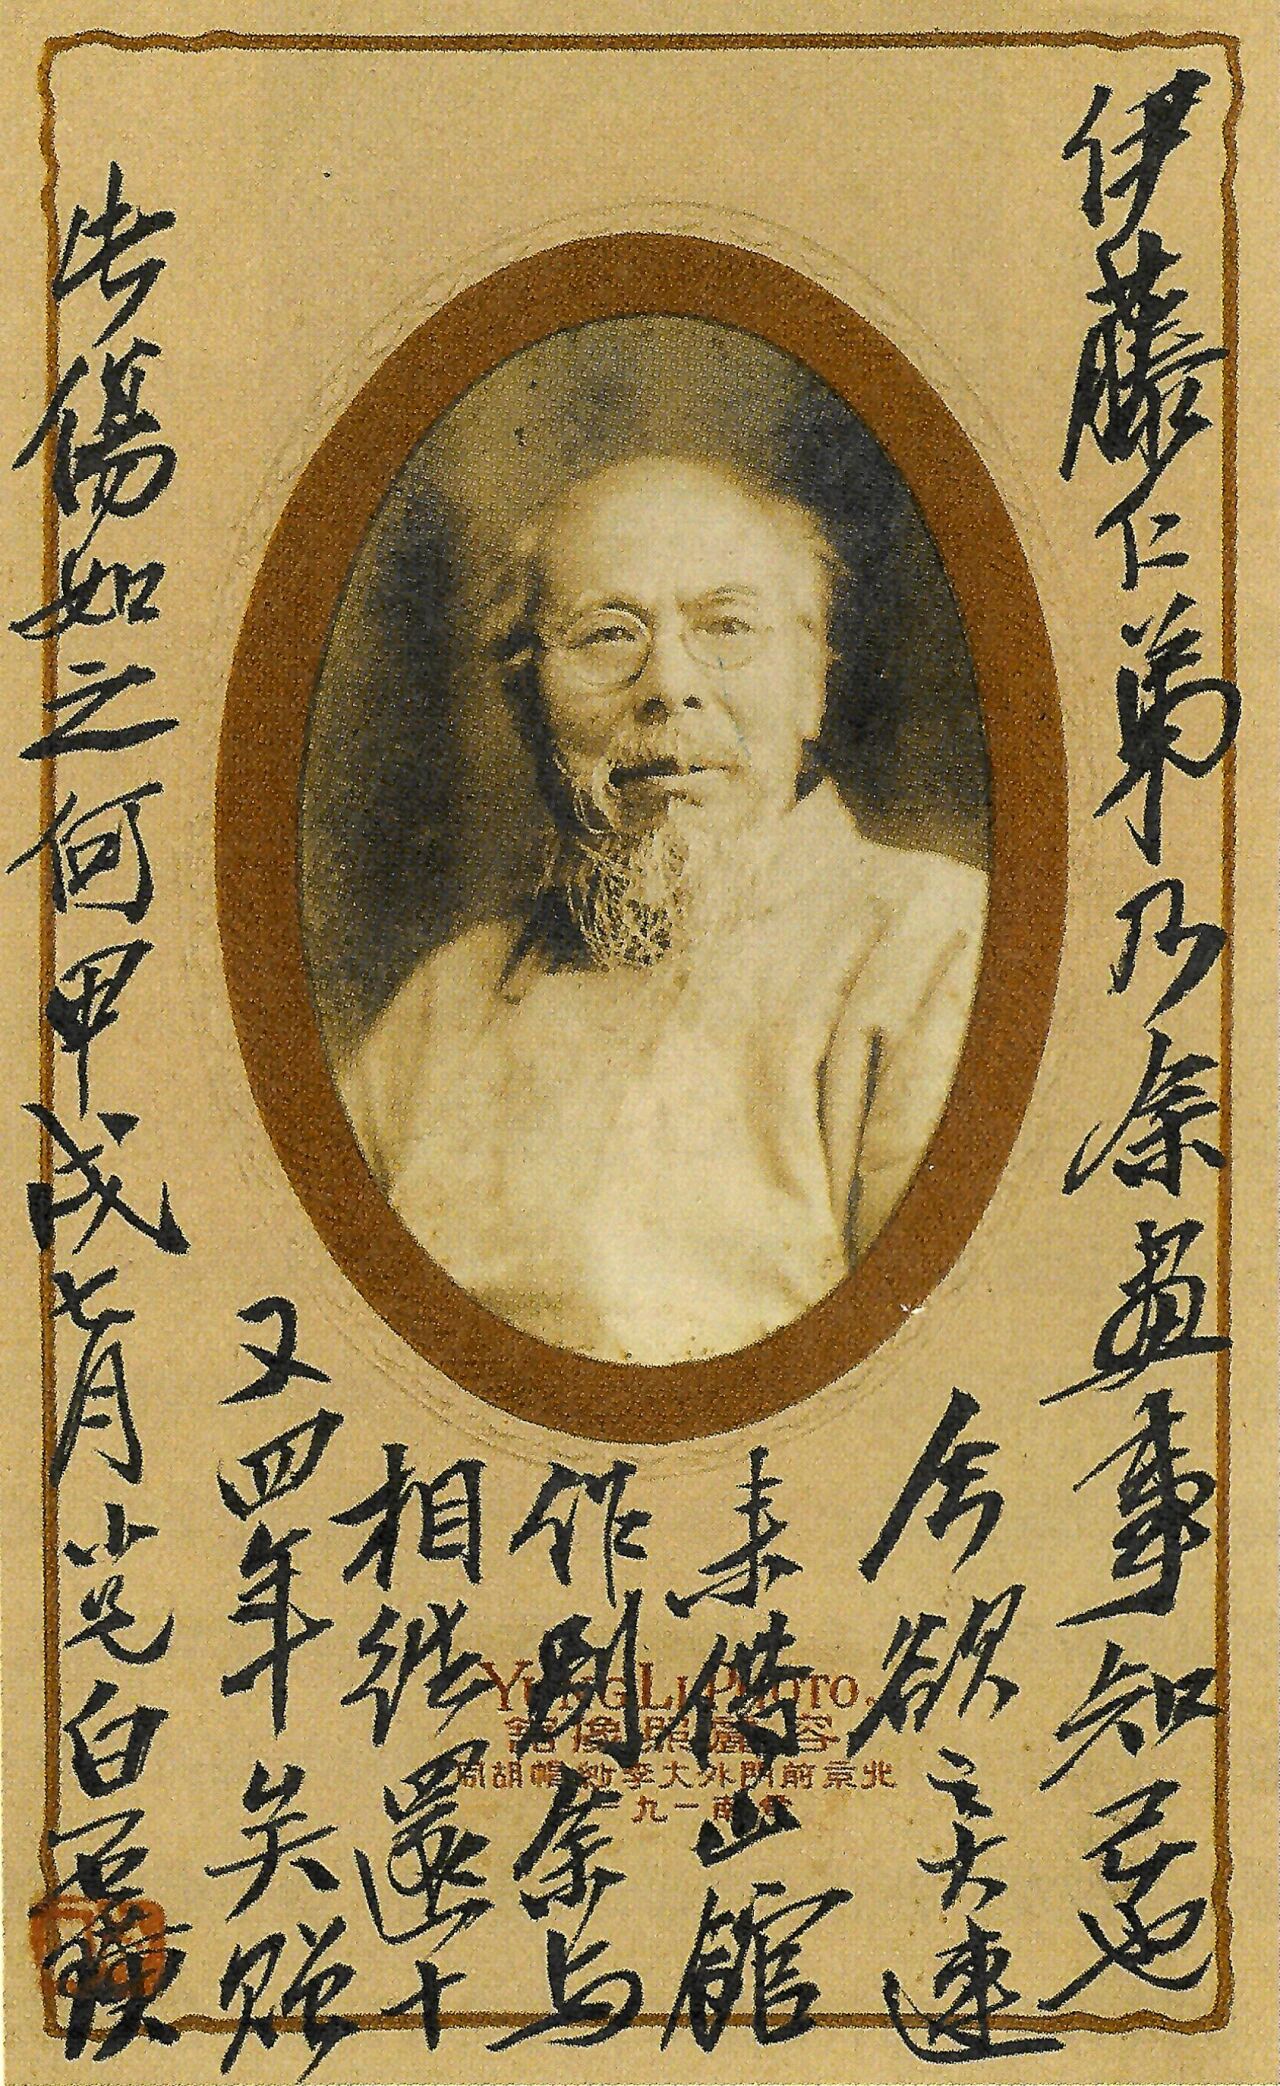 伊藤仁弟乃余畫事知己也
今欲之大連
來借山館
作別余与
相往還十
又四年矣贈
此傷如之何甲戌七月小兄白石璜
YUNG LI PHOTO.
容麗照像館
北京前門外大李紗帽胡同
南一九